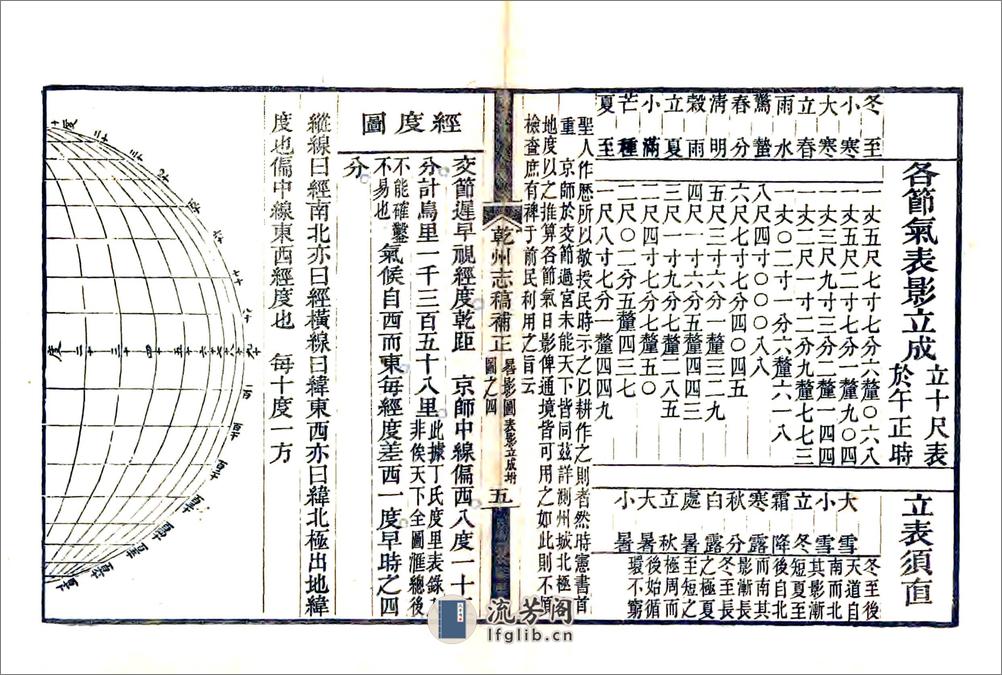 各節氣表影立成 立十尺表於午正時
立表須直
冬至 一丈五尺七寸七分六釐〇六八
小寒 一丈五尺二寸七分一釐九〇四 大雪
大寒 一丈三尺九寸三分六釐一四四 小雪
立春 一丈二尺一寸二分九釐七七三 立冬
雨水 一丈〇二寸一分六釐六一八 霜降
驚蟄 八尺四寸〇〇〇八八 寒露
春分 六尺七寸七分〇〇四五 秋分
清明 五尺三寸六分一釐三二九 白露
穀雨 四尺一寸六分五釐四四三 處暑
立夏 三尺一寸九分 立秋
小滿 二尺四寸七分 大暑
芒種 二尺〇二分五釐四三七 小暑
夏至 一尺八寸七分一釐四四九
冬至後
天道自
南而北
其影漸
短夏至
後自北
而南其
影漸長
冬至長
之極夏
至短之
極周而
後始循
環不窮
聖人作歷所以敬授民時示之以耕作之則者然時憲書首
重 京師於交節過宮未能天下皆同茲詳測州城北極
地度以之推算各節氣日影俾通境皆可用之如此則不須
檢查庶有裨于前民利用之旨云
乾州志稿補正 晷影圖表影立成坿 圖之四 五
經度圖
交節遲早視經度乾距 京師中線偏西八度一十
分計鳥里一千三百五十八里 此據丁氏度里表錄 非俟天下全圖滙總後
不能確鑿 不易也 氣候自西而東每經度差西一度早時之四
分
縱線曰經南北亦曰經橫線曰緯東西亦曰緯北極出地緯
度也偏中線東西經度也 每十度一方
度 十 二十 三十 四十 五十 六十 七十 八十 九十
流芳阁
lfglib.cn